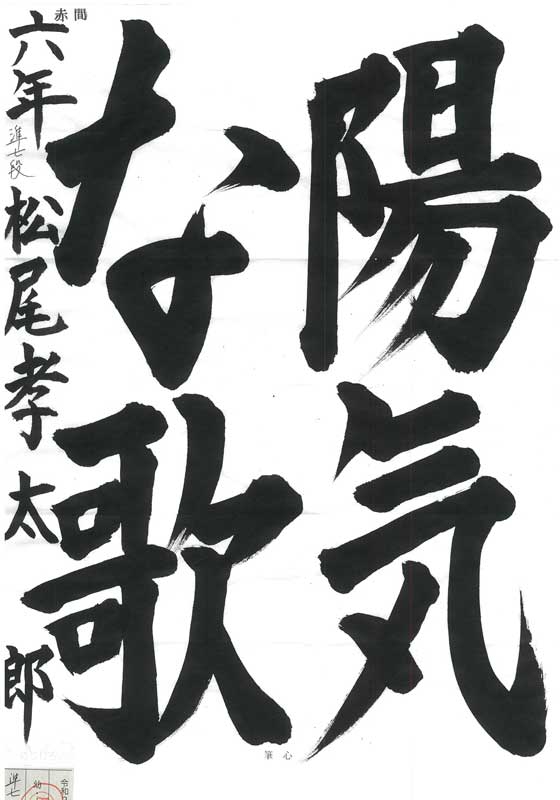 陽気
な歌
赤間
六年 準七段 松尾孝太郎
心筆
令和
幼
準七